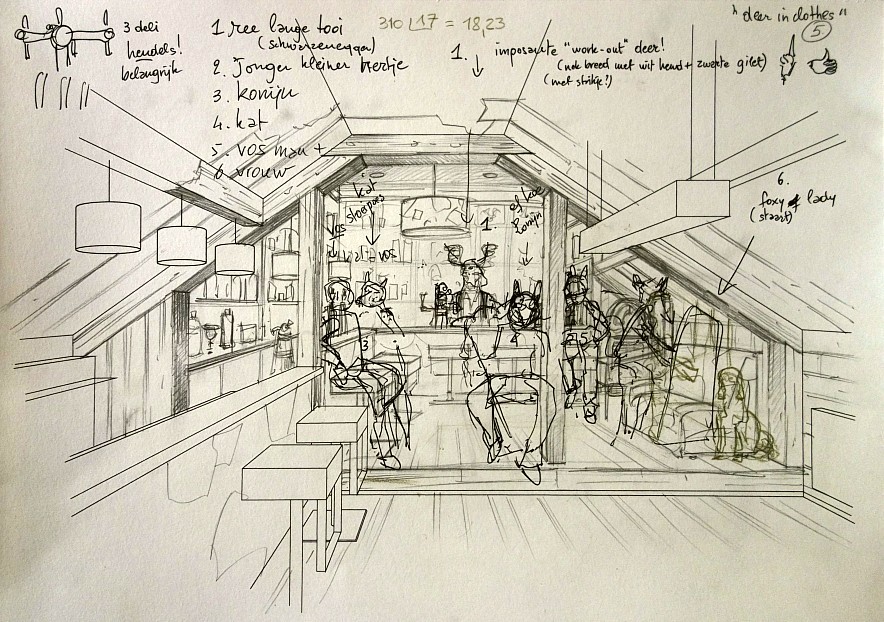 3 deli
hendels!
belangrijk
1 ree lange tooi
(schwarzenegger)
2. Jonger kleiner beertje
3. konijn
4. kat
5. vos man +
6 vrouw
310 17 = 18,23
1. imposante "work-out" deer!
(nek breed met wit hemd + zwarte gilet)
(met strikje!)
"deer in clothes"
5
6.
foxy lady
(staart)
kat
vos
1.
of koe
konijn
vos
3
4
5